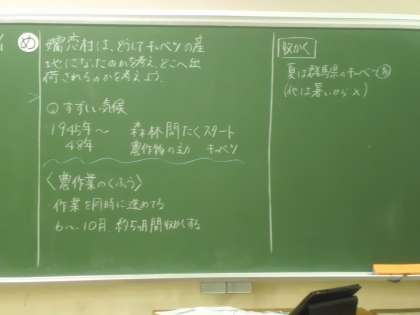 め
嬬恋村は、どうしてキャベツの産
地になったのかを考え、どこへ出
荷されるのかを考えよう。
すずしい気候
1945年～ 森林開たくスタート
48年 農作物の主力 キャベツ
〈農作業のくふう〉
作業を同時に進めてる
6～10月 約5ヶ月間収かくする
収かく
夏は群馬県のキャベツ
(他は暑いから×)